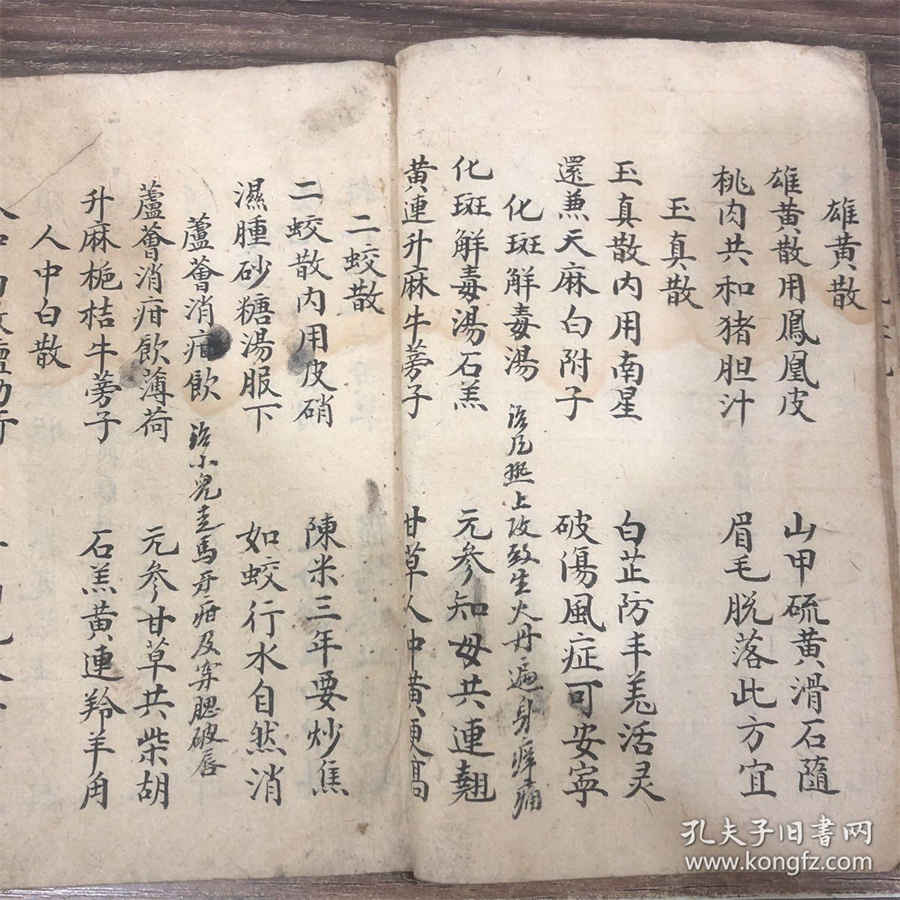 雄黄散
雄黄散用鳳凰皮 山甲硫黄滑石隨
桃肉共和猪胆汁 眉毛脱落此方宜
玉真散
玉真散内用南星 白芷防丰羗活灵
還兼天麻白附子 破傷風症可安寧
化斑解毒湯 治风热上攻致生火丹遍身痒痛
化斑解毒湯石羔 元参知母共連翹
黄連升麻牛蒡子 甘草人中黄便高
二蛟散
二蛟散内用皮硝 陳米三年要炒焦
濕腫砂糖湯服下 如蛟行水自然消
蘆薈消疳飲 治小兒走馬牙疳及穿腮破唇
蘆薈消疳飲薄荷 元参甘草共柴胡
升麻梔桔牛蒡子 石羔黄連羚羊角
人中白散
孔夫子旧書网
www.kongfz.com